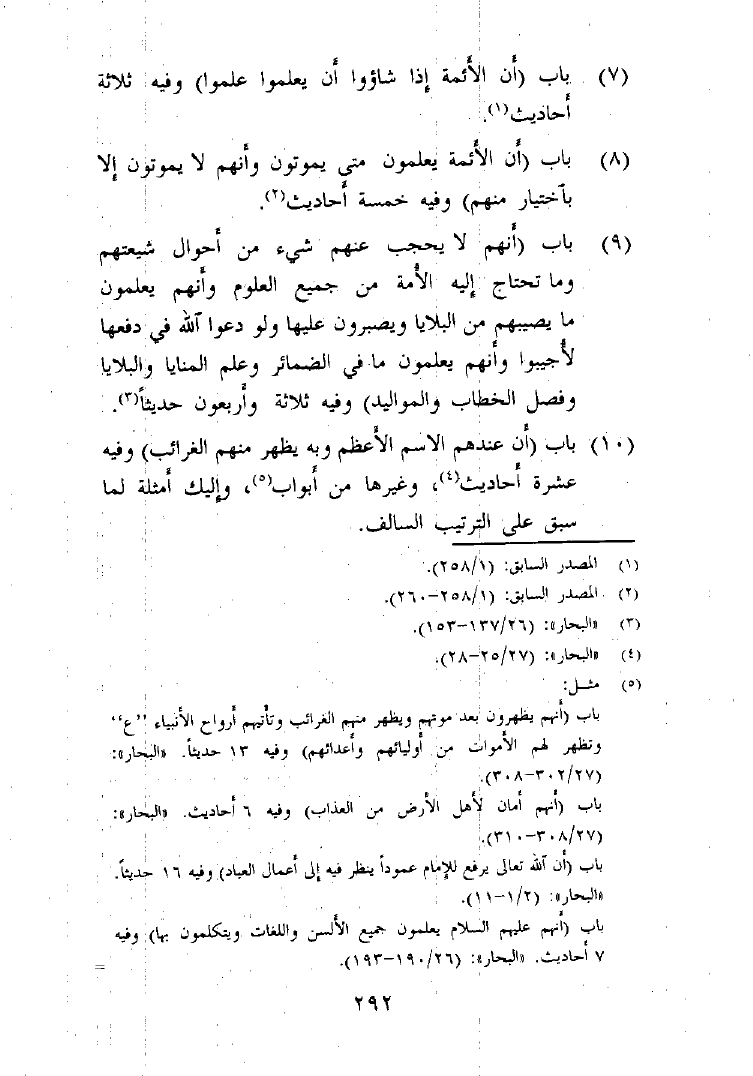 (٧) باب (أَن الأَئمة إِذا شاؤوا أَن يعلموا علموا) وفيه ثلاثة
أَحاديث(١).
(٨) باب (أَن الأَئمة يعلمون متى يموتون وأَنهم لا يموتون إلا
بٱختيار منهم) وفيه خمسة أَحاديث(٢).
(٩) باب (أَنهم لا يحجب عنهم شيء من أَحوال شيعتهم
وما تحتاج إِليه الأُمة من جميع العلوم وأَنهم يعلمون
ما يصيبهم من البلايا ويصبرون عليها ولو دعوا ٱلله في دفعها
لأُجيبوا وأَنهم يعلمون ما في الضمائر وعلم المنايا والبلايا
وفصل الخطاب والمواليد) وفيه ثلاثة وأَربعون حديثاً(٣).
(١٠) باب (أَن عندهم الاسم الأَعظم وبه يظهر منهم الغرائب) وفيه
عشرة أَحاديث(٤)، وغيرها من أَبواب(٥)، وإِليك أَمثلة لما
سبق على الترتيب السالف.
(١) المصدر السابق: (٢٥٨/١).
(٢) المصدر السابق: (٢٥٨/١-٢٦٠).
(٣) «البحار»: (١٣٧/٢٦-١٥٣).
(٤) «البحار»: (٢٥/٢٧-٢٨).
(٥) مثـل:
باب (أَنهم يظهرون بعد موتهم ويظهر منهم الغرائب وتأتيهم أرواح الأنبياء "ع"
وتظهر لهم الأَموات من أَوليائهم وأَعدائهم) وفيه ١٣ حديثاً. «البحار»:
(٣٠٢/٢٧-٣٠٨).
باب (أَنهم أَمان لأَهل الأَرض من العذاب) وفيه ٦ أَحاديث. «البحار»:
(٣٠٨/٢٧-٣١٠).
باب (أَن ٱلله تعالى يرفع للإِمام عموداً ينظر فيه إِلى أَعمال العباد) وفيه ١٦ حديثاً.
«البحار»: (١/٢-١١).
باب (أَنهم عليهم السلام يعلمون جميع الأَلسن واللغات ويتكلمون بها) وفيه
٧ أَحاديث. «البحار»: (١٩٠/٢٦-١٩٣). =
٢٩٢